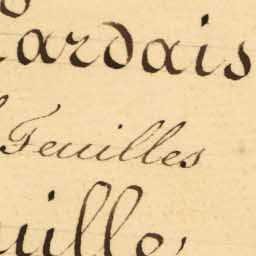 ardais
Feuilles
uille,